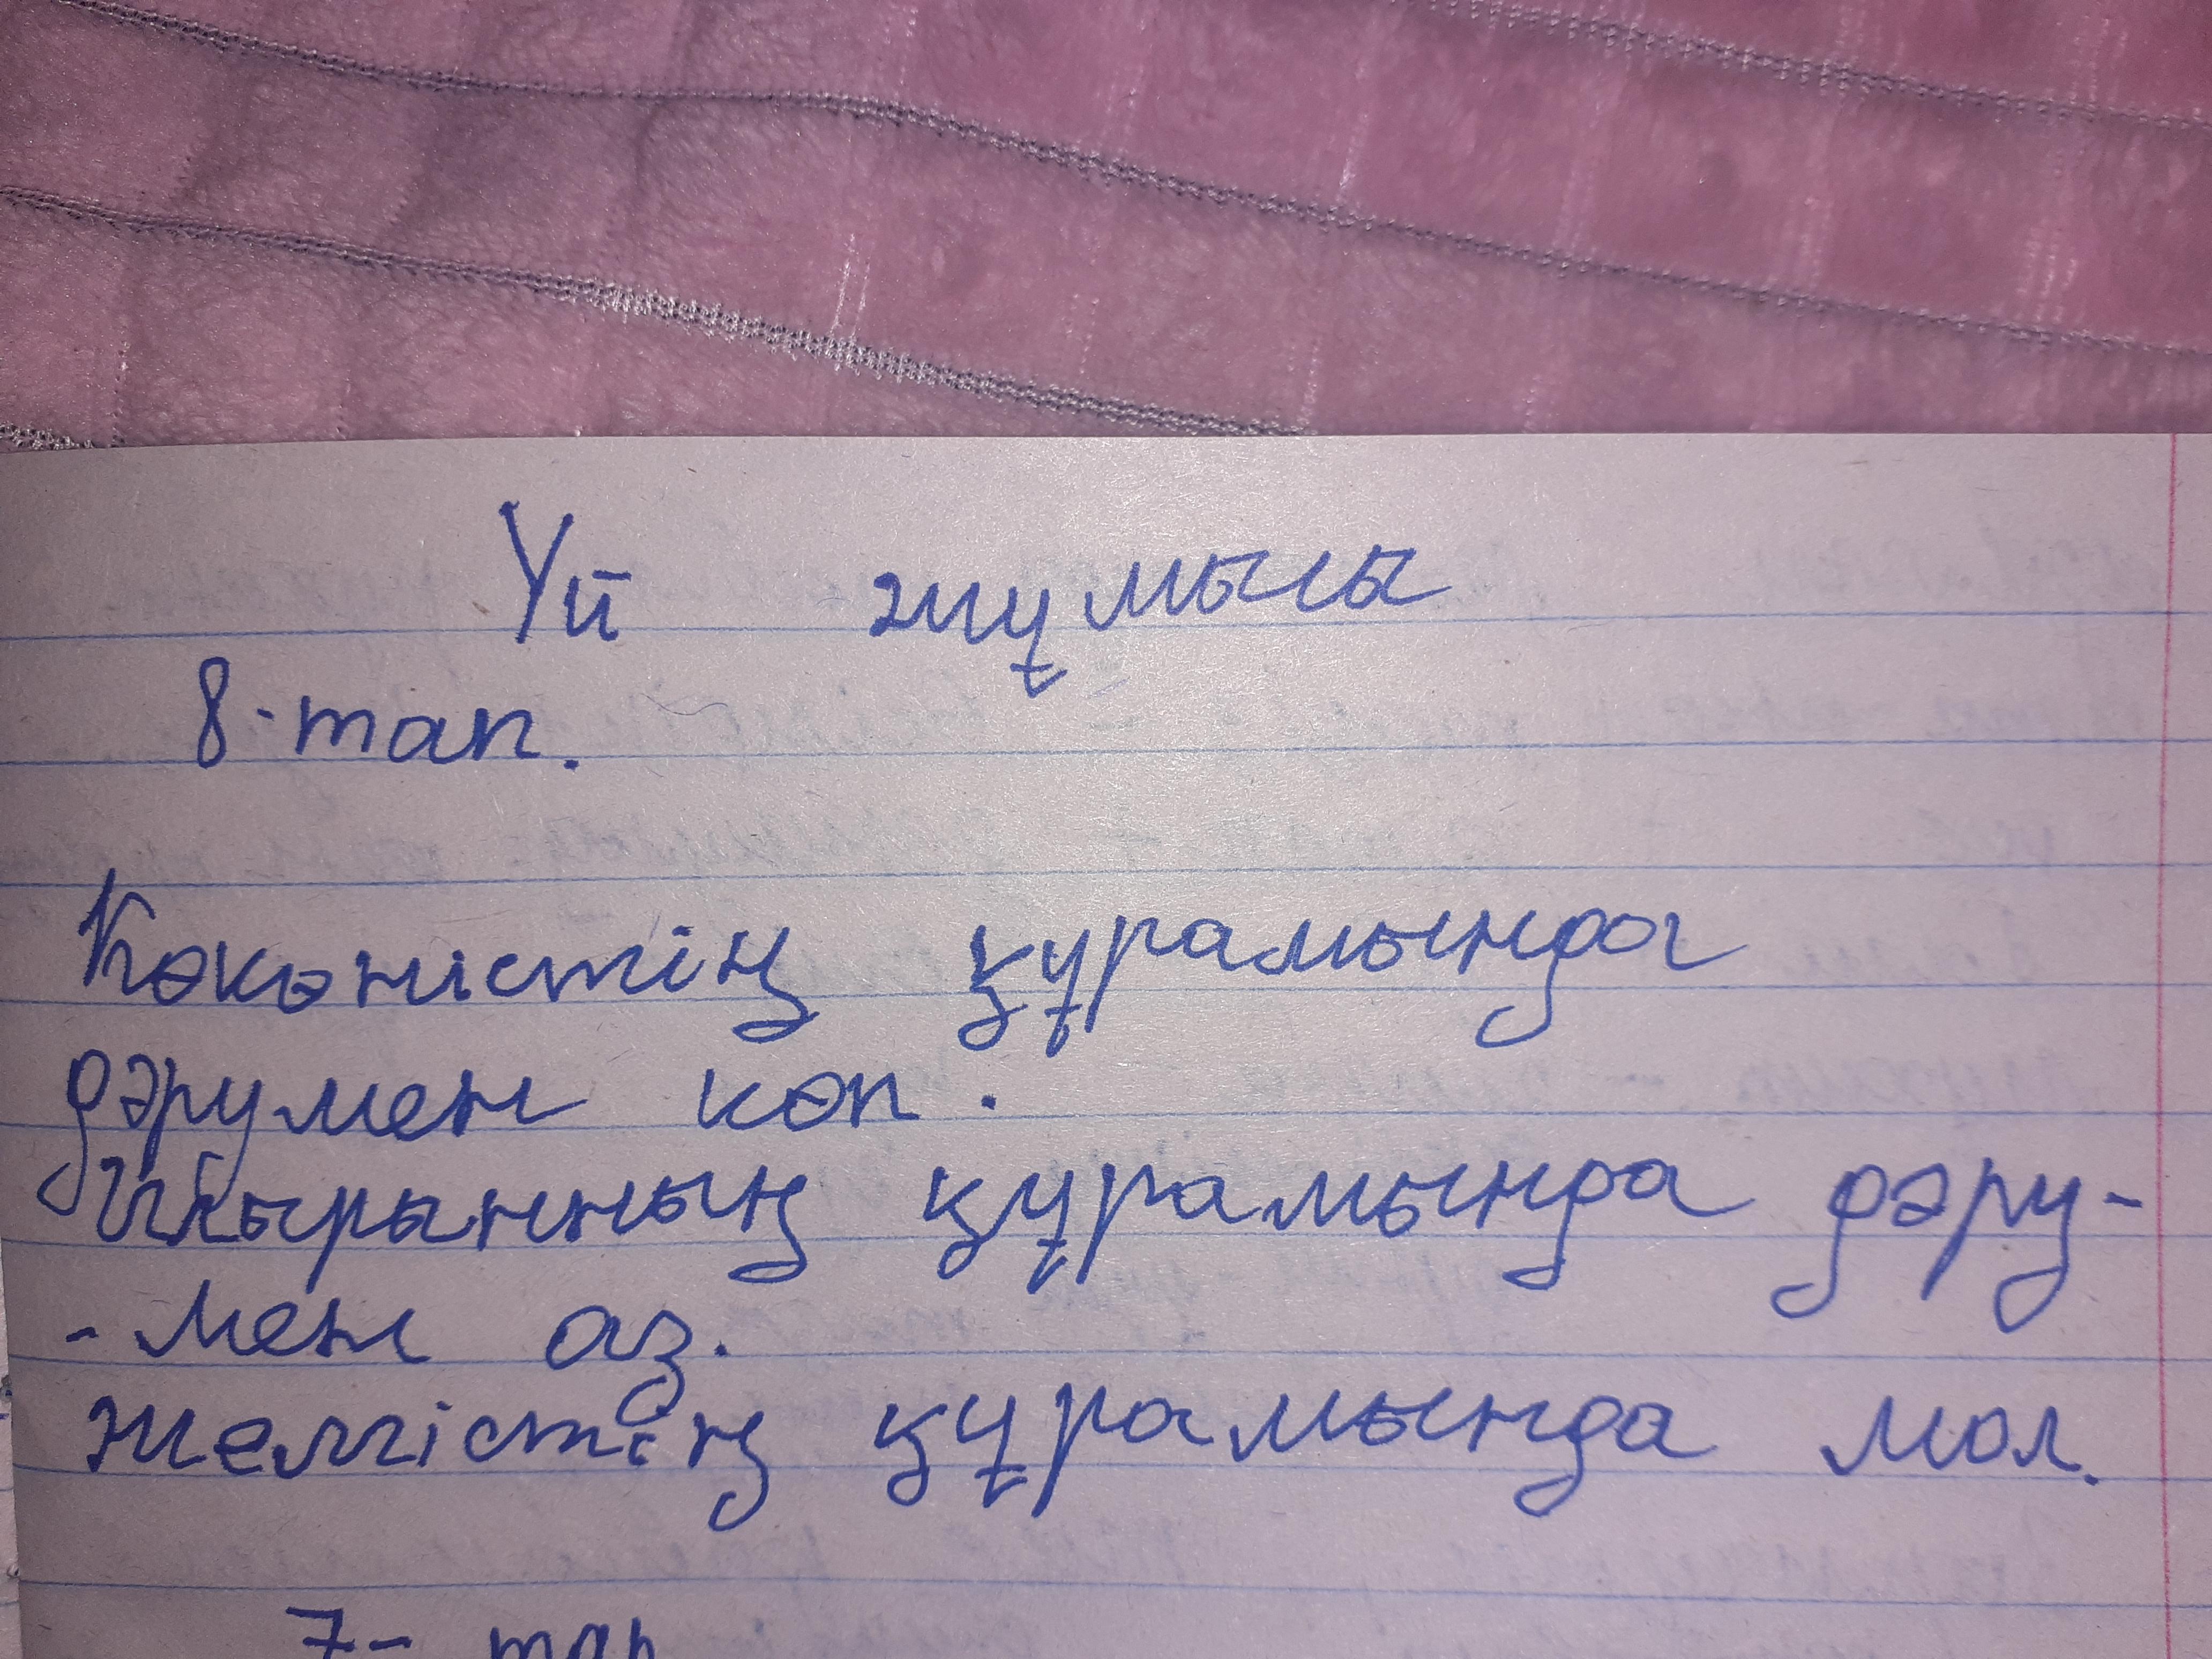 Үй жұмысы
8-тап.
Көкөністің құрамында
дәрумен көп.
құрамында дәру-
-мен аз.
жемістің құрамында мол.
7- тап